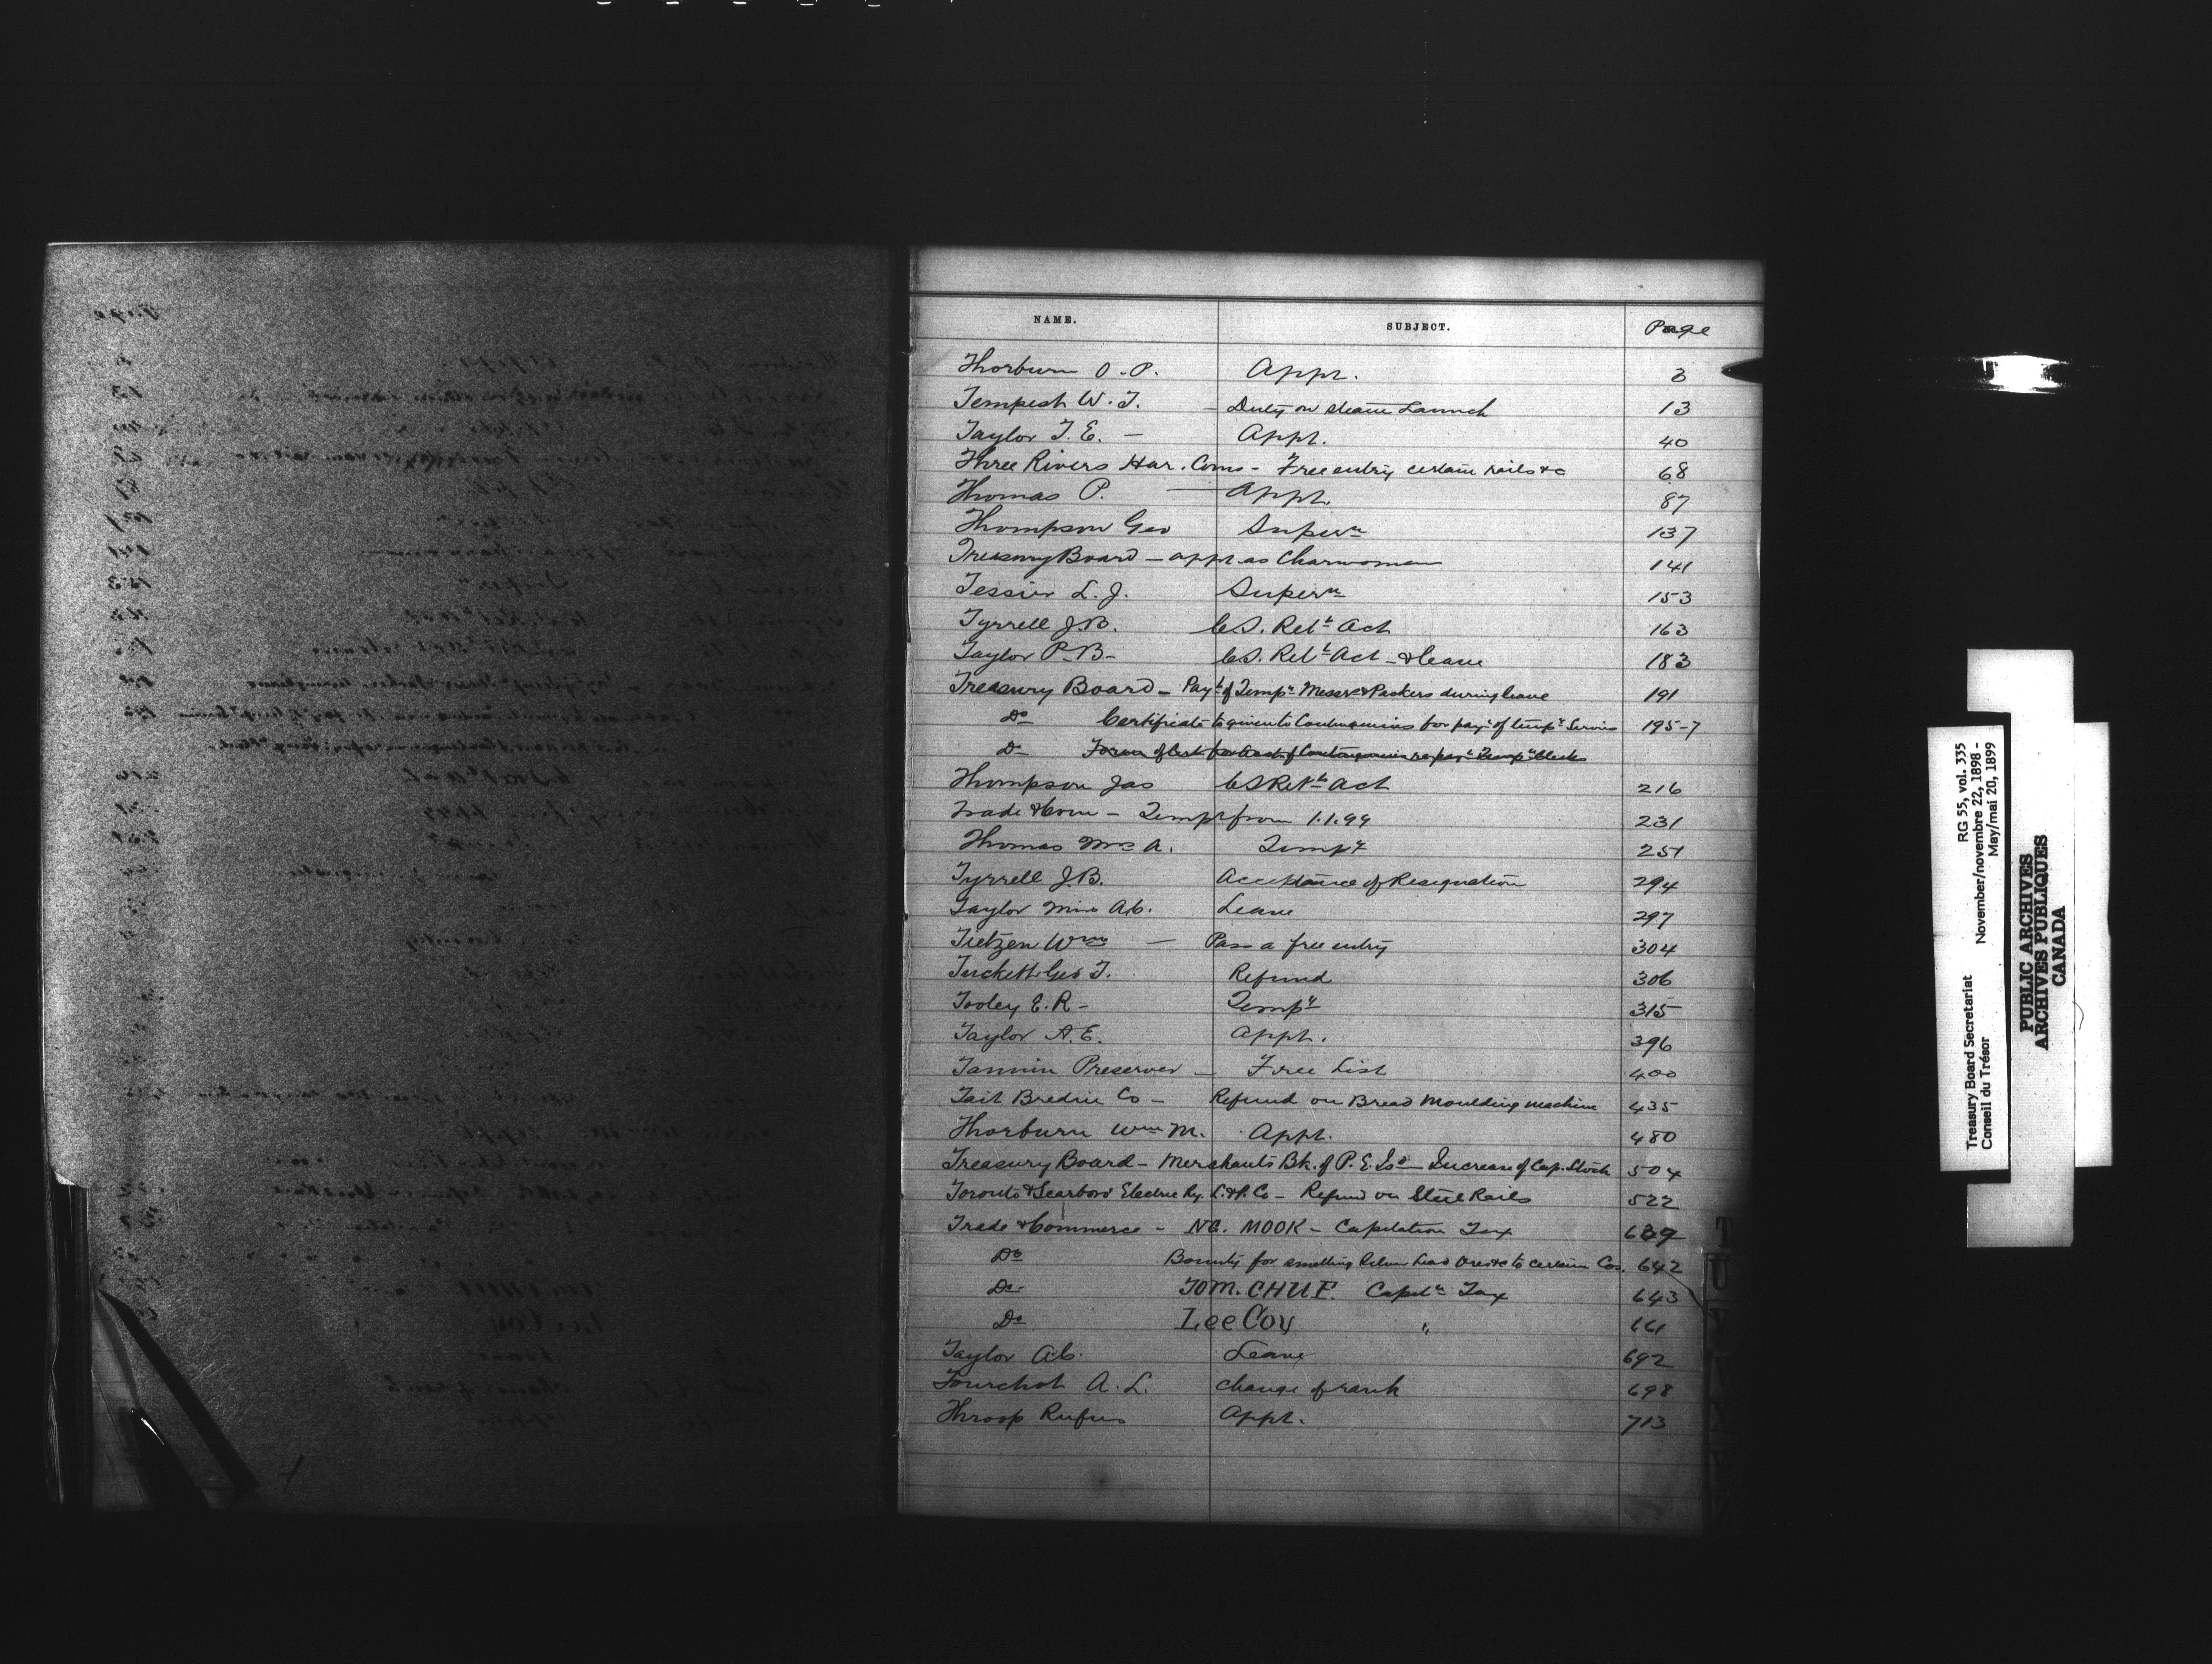 NAME. SUBJECT. Page
Thorburn O. P. Appt. 3
Tempest W. T. - Duty on steam Launch 13
Taylor T. E. - Appt. 40
Three Rivers Har. Coms - Free entry certain rails &c 68
Thomas P. - Appt. 87
Thompson Geo Supern 137
Treasury Board - appt as Charwoman 141
Tessier L. J. Supern 153
Tyrrell J.B. C.S. Ret't Act 163
Taylor P. B- C.S. Ret't Act - & leave 183
Treasury Board - Payt of Tempy Messrs & Packers during leave 191
Do Certificate to given to Contingencies for payt of tempy Service 195-7
Do Form of Cert for Acct of Contingencies re payt Tempy Clerks
Thompson Jas C S Ret't Act 216
Trade & Com - Tempy from 1.1.99 231
Thomas Mrs A. Tempy 251
Tyrrell J.B. Acceptance of Resignation 294
Taylor Miss A.C. Leave 297
Tietzen Wm - Pass a free entry 304
Tuckett Geo T. Refund 306
Tooley E. R - Tempy 315
Taylor A. E. Appt. 396
Tannin Preserver - Free List 400
Tait Bredin Co - Refund on Bread Moulding machine 435
Thorburn Wm M. Appt. 480
Treasury Board - Merchants Bk. of P. E. Isd - Increase of Cap. Stock 504
Toronto & Scarboro' Electric Ry. L. & P. Co - Refund on Steel Rails 522
Trade & Commerce - NG. MOOK - Capitation Tax 639
Do Bounty for smelting Silver Lead Ores &c to certain Cos. 642
Do TOM. CHUE. Capitn Tax 643
Do Lee Coy " 661
Taylor A.C. Leave 692
Tourchot A. L. change of rank 698
Throop Rufus Appt. 713
T
U
V
W
X
Y
Z
Treasury Board Secretariat RG 55, vol. 335
Conseil du Trésor November/novembre 22, 1898 -
May/mai 20, 1899
PUBLIC ARCHIVES
ARCHIVES PUBLIQUES
CANADA